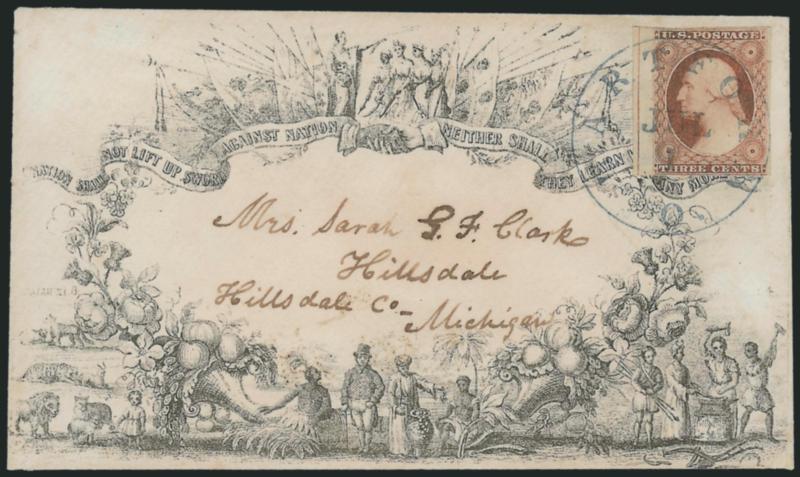 U.S. POSTAGE
THREE CENTS
JUL
NATION SHALL NOT LIFT UP SWORD AGAINST NATION NEITHER SHALL THEY LEARN ANY MORE
Mrs. Sarah G. F. Clark
Hillsdale
Hillsdale Co- Michigan